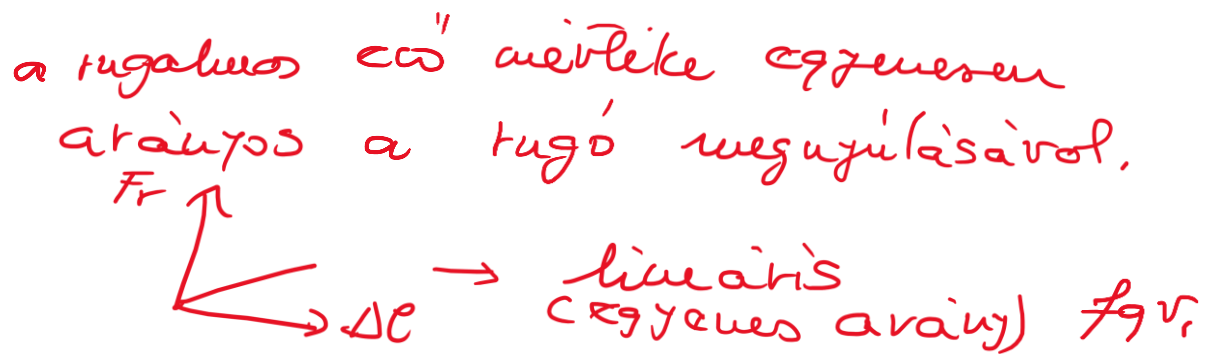 a rugalmas erő mértéke egyenesen
arányos a rugó megnyúlásával.
Fr
Δl → lineáris
(egyenes arány) fgv.